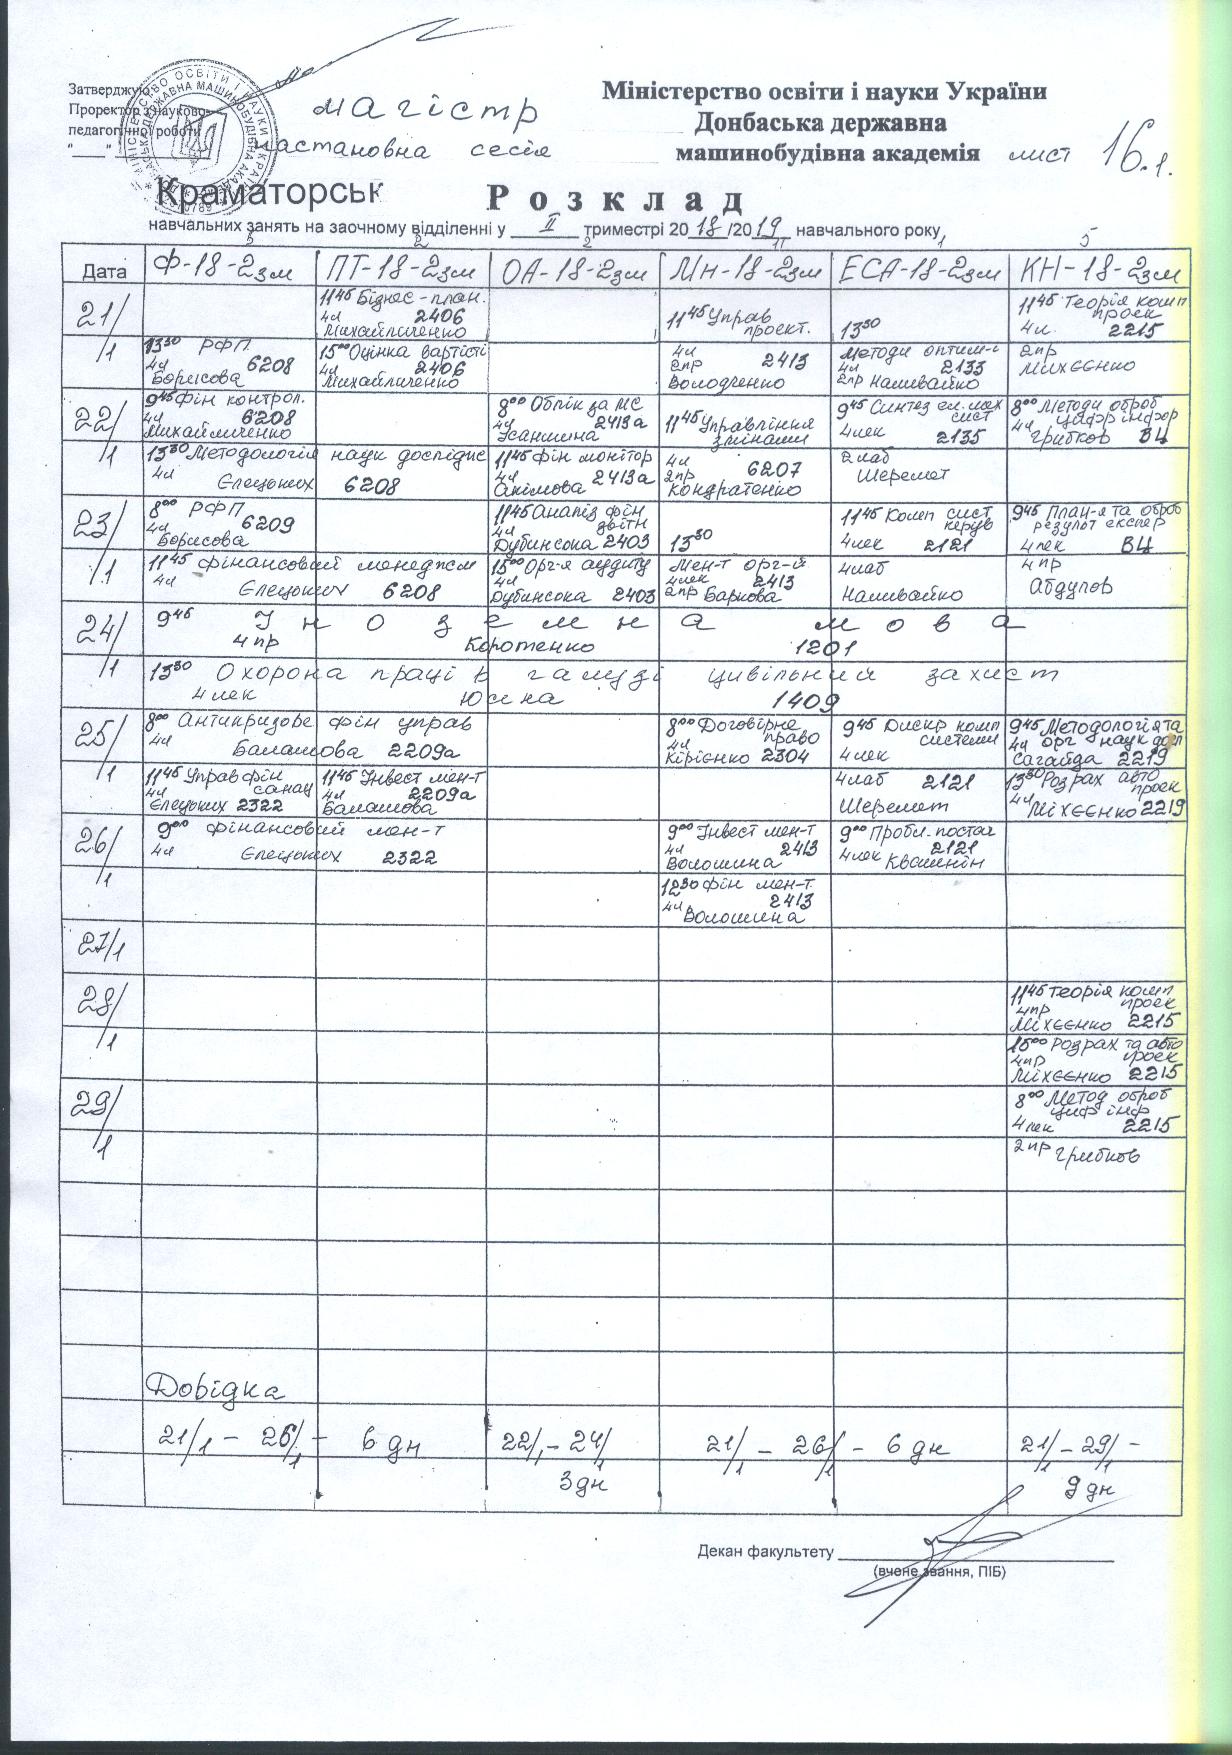 Затверджую
Проректор з науково-
педагогічної роботи
магістр
настановна сесія
Міністерство освіти і науки України
Донбаська державна
машинобудівна академія лист 16.1.
Краматорськ
Розклад
навчальних занять на заочному відділенні у II триместрі 2018/2019 навчального року
Дата Ф-18-2зм ПТ-18-2зм ОА-18-2зм Мн-18-2зм ЕСА-18-2зм КН-18-2зм
21/1
13³⁰ РФП
4л 6208
Борисова
11⁴⁵ Бізнес-план.
4л 2406
Михайличенко
15⁰⁰ Оцінка вартісті
4л 2406
Михайличенко
11⁴⁵ Управ
проект.
4л 2413
2пр
Володченко
13³⁰
Методи оптим-ї
4л 2133
2пр Наливайко
11⁴⁵ Теорія комп
проек
4л. 2215
2пр
Міхєєнко
22/1
9⁴⁵ Фін контрол.
4л 6208
Михайличенко
13³⁰ Методологія наук дослідне
4л Єлецьких 6208
8⁰⁰ Облік за МС
4л 2413а
11⁴⁵ Фін монітор
4л 2413а
Акімова
11⁴⁵ Управління
змінами
4л 6207
2пр
Кондратенко
9⁴⁵ Синтез ел. мех
сист
4лек 2135
2лаб
Шеремет
8⁰⁰ Методы оброб
цифр інфор
4л Грибков ВЦ
23/1
8⁰⁰ РФП
4л 6209
Борисова
11⁴⁵ Фінансовий менеджм
4л Єлецьких 6208
11⁴⁵ Аналіз фін
звітн
4л
Дубинська 2403
15⁰⁰ Орг-я аудиту
4л
Дубинська 2403
13³⁰
Мен-т орг-й
4лек 2413
2пр Баркова
11⁴⁵ Комп сист
керув
4лек 2121
4лаб
Наливайко
9⁴⁵ План-я та оброб
результ експер
4лек ВЦ
4пр
Абдулов
24/1
9⁴⁵ Іноземна мова
4пр Коротенко 1201
13³⁰ Охорона праці в галузі цивільний захист
4лек Юсіна 1409
25/1
8⁰⁰ Антикризове фін управ
4л Балашова 2209а
11⁴⁵ Управ фін
санац
4л
Єлецьких 2322
11⁴⁵ Інвест мен-т
4л 2209а
Балашова
8⁰⁰ Договірне
право
4л
Кірієнко 2304
9⁴⁵ Дискр комп
системи
4лек
4лаб 2121
Шеремет
9⁴⁵ Методологія та
4л орг наук досл
Сагайда 2219
13³⁰ Розрах авто
проек
4л
Міхєєнко 2219
26/1
9⁰⁰ Фінансовий мен-т
4л Єлецьких 2322
9⁰⁰ Інвест мен-т
4л 2413
Волошина
12³⁰ Фін мен-т
4л 2413
Волошина
9⁰⁰ Пробл. постач
2121
4лек Квашнін
27/1
28/1
11⁴⁵ Теорія комп
4пр проек
Міхєєнко 2215
15⁰⁰ Розрах та авто
4пр проек
Міхєєнко 2215
29/1
8⁰⁰ Метод оброб
циф інф
4лек 2215
2пр Грибков
Довідка
21/1 – 26/1 – 6 дн 22/1 – 24/1 21/1 – 26/1 – 6 дн 21/1 – 29/1 –
3 дн 9 дн
Декан факультету
(вчене звання, ПІБ)